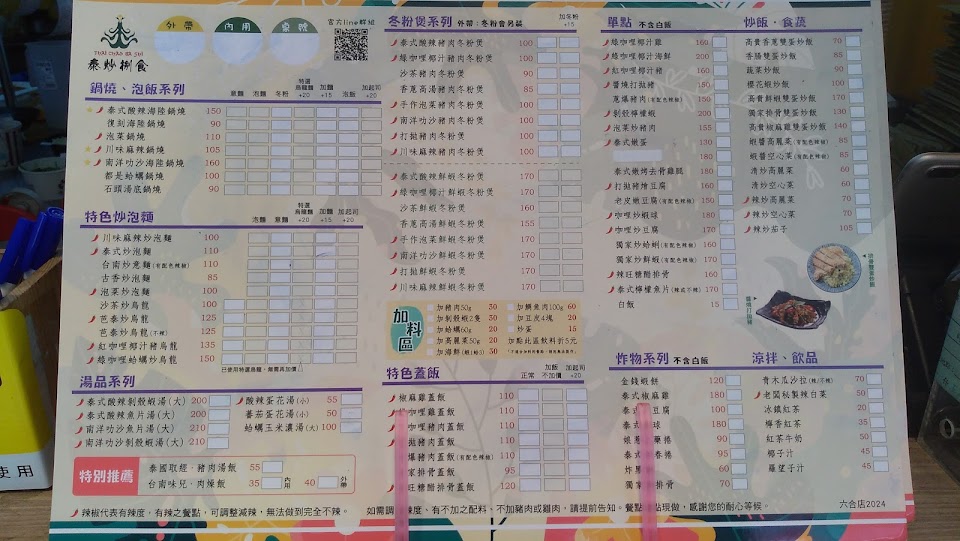 THAI CHAO BA SHI
泰炒捌食
外帶 內用 桌號
官方line群組
鍋燒、泡飯系列
意麵 泡麵 冬粉 特選烏龍麵+20 加麵+15 泡飯 加起司+20
泰式酸辣海陸鍋燒 150
復刻海陸鍋燒 90
泡菜鍋燒 110
川味麻辣鍋燒 105
南洋叻沙海陸鍋燒 160
都是蛤蠣鍋燒 100
石頭湯底鍋燒 90
特色炒泡麵
泡麵 意麵 特選烏龍麵+20 加麵+15 加起司+20
川味麻辣炒泡麵 100
泰式炒泡麵 110
台南炒意麵(有配色辣椒) 110
古香炒泡麵 85
泡菜炒泡麵 100
沙茶炒烏龍 100
芭泰炒烏龍 125
芭泰炒烏龍(不辣) 125
紅咖哩椰汁豬烏龍 135
綠咖哩蛤蠣炒烏龍 150
已使用特選烏龍，無需再加價
湯品系列
泰式酸辣剝殼蝦湯(大) 200
泰式酸辣魚片湯(大) 200
南洋叻沙魚片湯(大) 210
南洋叻沙剝殼蝦湯(大) 210
酸辣蛋花湯(小) 55
蕃茄蛋花湯(小) 50
蛤蠣玉米濃湯(大) 100
特別推薦
泰國取經．豬肉湯飯 55
台南味兒．肉燥飯 35 內用 40 外帶
冬粉煲系列 外帶：冬粉會另裝
加冬粉+15
泰式酸辣豬肉冬粉煲 100
綠咖哩椰汁豬肉冬粉煲 100
沙茶豬肉冬粉煲 90
香蔥高湯豬肉冬粉煲 85
手作泡菜豬肉冬粉煲 100
南洋叻沙豬肉冬粉煲 100
打拋豬肉冬粉煲 100
川味麻辣豬肉冬粉煲 100
泰式酸辣鮮蝦冬粉煲 170
綠咖哩椰汁鮮蝦冬粉煲 170
沙茶鮮蝦冬粉煲 160
香蔥高湯鮮蝦冬粉煲 155
手作泡菜鮮蝦冬粉煲 170
南洋叻沙鮮蝦冬粉煲 170
打拋鮮蝦冬粉煲 170
川味麻辣鮮蝦冬粉煲 170
加料區
加豬肉50g 30
加剝殼蝦2隻 30
加蛤蠣60g 20
加高麗菜50g 20
加海鮮(蝦1蛤3) 30
加鯛魚肉100g 60
加豆皮4塊 20
炒蛋 15
加點此區飲料折5元
特色蓋飯
正常 加飯不加價 加起司+20
椒麻雞蓋飯 110
咖哩雞蓋飯 110
咖哩豬蓋飯 110
拋豬蓋飯 110
爆豬肉蓋飯(有配色辣椒) 110
家排骨蓋飯 95
旺糖醋排骨蓋飯 120
單點 不含白飯
綠咖哩椰汁雞 160
綠咖哩椰汁海鮮 200
紅咖哩椰汁豬 160
醬燒打拋豬 150
蔥爆豬肉(有配色辣椒) 150
剝殼檸檬蝦 200
泡菜炒豬肉 155
泰式嫩蛋 130
180
泰式嫩烤去骨雞腿 180
打拋豬燴豆腐 160
老皮嫩豆腐(有配色辣椒) 150
咖哩炒蝦球 180
咖哩炒豆腐 150
獨家炒蛤蜊(有配色辣椒) 160
獨家炒鮮蝦(有配色辣椒) 170
辣旺糖醋排骨 160
泰式檸檬魚片(辣或不辣) 170
白飯 15
炸物系列 不含白飯
金錢蝦餅 120
泰式椒麻雞 180
泰式 豆腐 100
泰式 球 180
銀 捲 90
泰式 春捲 95
炸 60
獨家排骨 70
炒飯．食蔬
高貴香蔥雙蛋炒飯 70
香腸雙蛋炒飯 85
蔬菜炒飯 90
櫻花蝦炒飯 100
高貴鮮蝦雙蛋炒飯 140
獨家排骨雙蛋炒飯 130
高貴椒麻雞雙蛋炒飯 140
蝦醬高麗菜(有配色辣椒) 85
蝦醬空心菜(有配色辣椒) 85
清炒高麗菜 60
清炒空心菜 60
辣炒高麗菜 70
辣炒空心菜 70
辣炒茄子 105
排骨雙蛋炒飯
醬燒打拋豬
涼拌、飲品
青木瓜沙拉(辣/不辣) 70
老闆私製辣白菜 50
冰鎮紅茶 20
檸香紅茶 35
紅茶牛奶 50
椰子汁 45
羅望子汁 45
辣椒代表有辣度，有辣之餐點，可調整減辣，無法做到完全不辣。 如需調 辣度、有不加之配料、不加豬肉或雞肉，請提前告知。餐點 點現做，感謝您的耐心等候。
六合店2024
使用